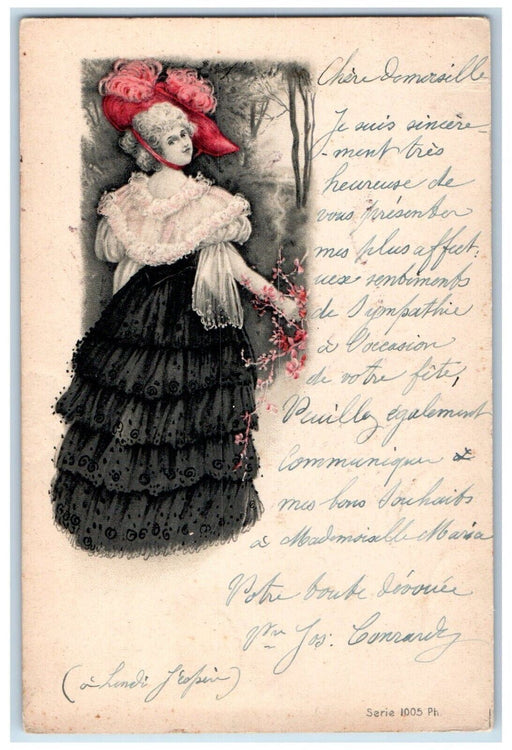 Chère Demoiselle
Je suis sincère-
-ment très
heureuse de
vous présenter
mes plus affect-
ueux sentiments
de Sympathie
à l'occasion
de votre fête,
Veuillez également
communiquer
mes bons Souhaits
à Mademoiselle Maria
Votre toute dévouée
Vve Jos. Conrardy
(à lundi J'espère)
Serie 1005 Ph.